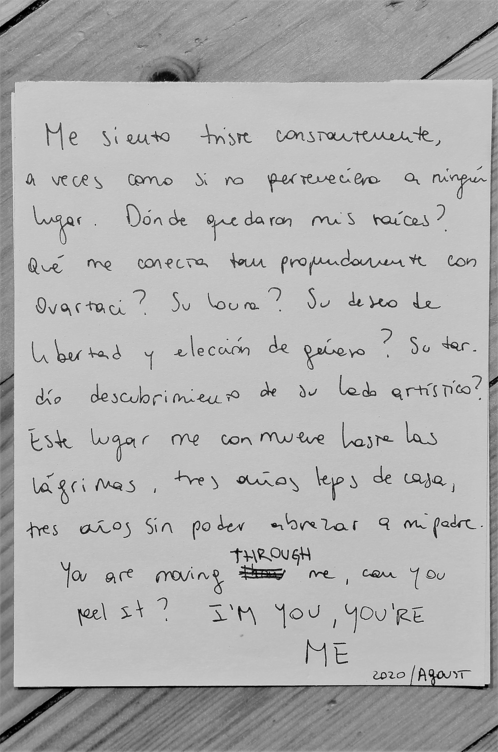 Me siento triste constantemente,
a veces como si no perteneciera a ningún
lugar. Dónde quedaron mis raíces?
Qué me conecta tan profundamente con
Ovartaci? Su locura? Su deseo de
libertad y elección de género? Su tar-
dío descubrimiento de su lado artístico?
Este lugar me conmueve hasta las
lágrimas, tres años lejos de casa,
tres años sin poder abrazar a mi padre.
THROUGH
You are moving me, can you
feel It? I'M YOU, YOU'RE
ME
2020/Agoust